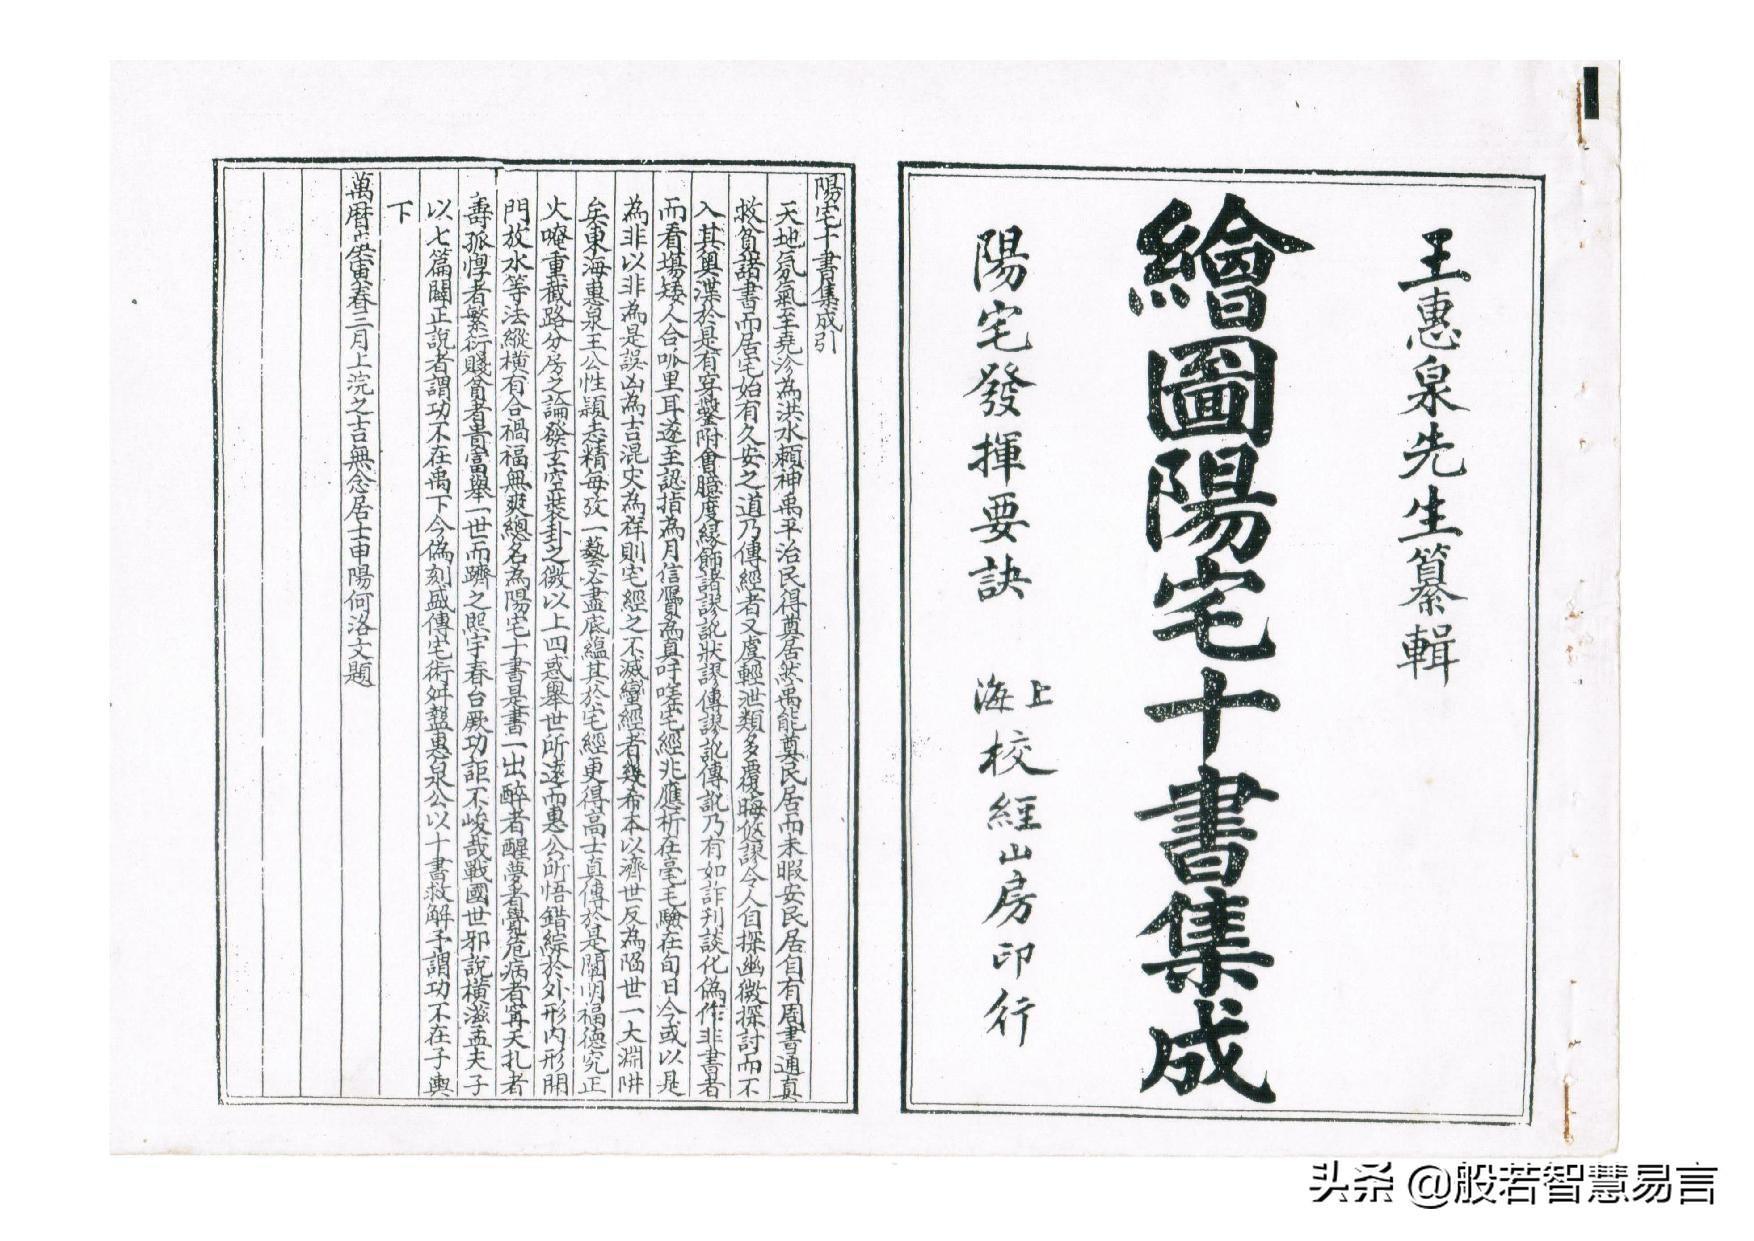 王惠泉先生纂輯
繪圖陽宅十書集成
陽宅發揮要訣
上海校經山房印行
陽宅十書集成引
天地氛氣至堯沴為洪水賴神禹平治民得奠居然禹能奠民居而未暇安民居自有周書通真
救貧諸書而居宅始有久安之道乃傳經者又虞輕泄類多覆晦悠謬今人自探幽微探討而不
入其奧渫於是有穿鑿附會臆度緣飾諸謬訛狀謬傳謬訛傳訛乃有如詐刊談化偽作非書者
而看場矮人合哆里耳遂至認指為月信贗為真吁嗟宅經兆應析在毫毛驗在旬日今或以是
為非以非為是誤凶為吉混灾為祥則宅經之不滅蠻經者幾希本以濟世反為陷世一大淵阱
矣東海惠泉王公性穎志精每攷一藝必盡底蘊其於宅經更得高士真傳於是闡明福德究正
火喗重截路分房之論發玄空裝卦之微以上四惑舉世所迷而惠公所悟錯綜於外形內形開
門放水等法縱橫有合禍福無爽總名為陽宅十書是書一出醉者醒夢者覺危病者寧夭札者
壽孤惸者繁衍賤貧者貴富舉一世而躋之熙宇春台厥功詎不峻哉戰國世邪說橫溢孟夫子
以七篇闢正說者謂功不在禹下今偽刻盛傳宅術舛盭惠泉公以十書救解予謂功不在子輿
下
萬曆庚寅春三月上浣之吉無念居士申陽何洛文題
头条 @般若智慧易言